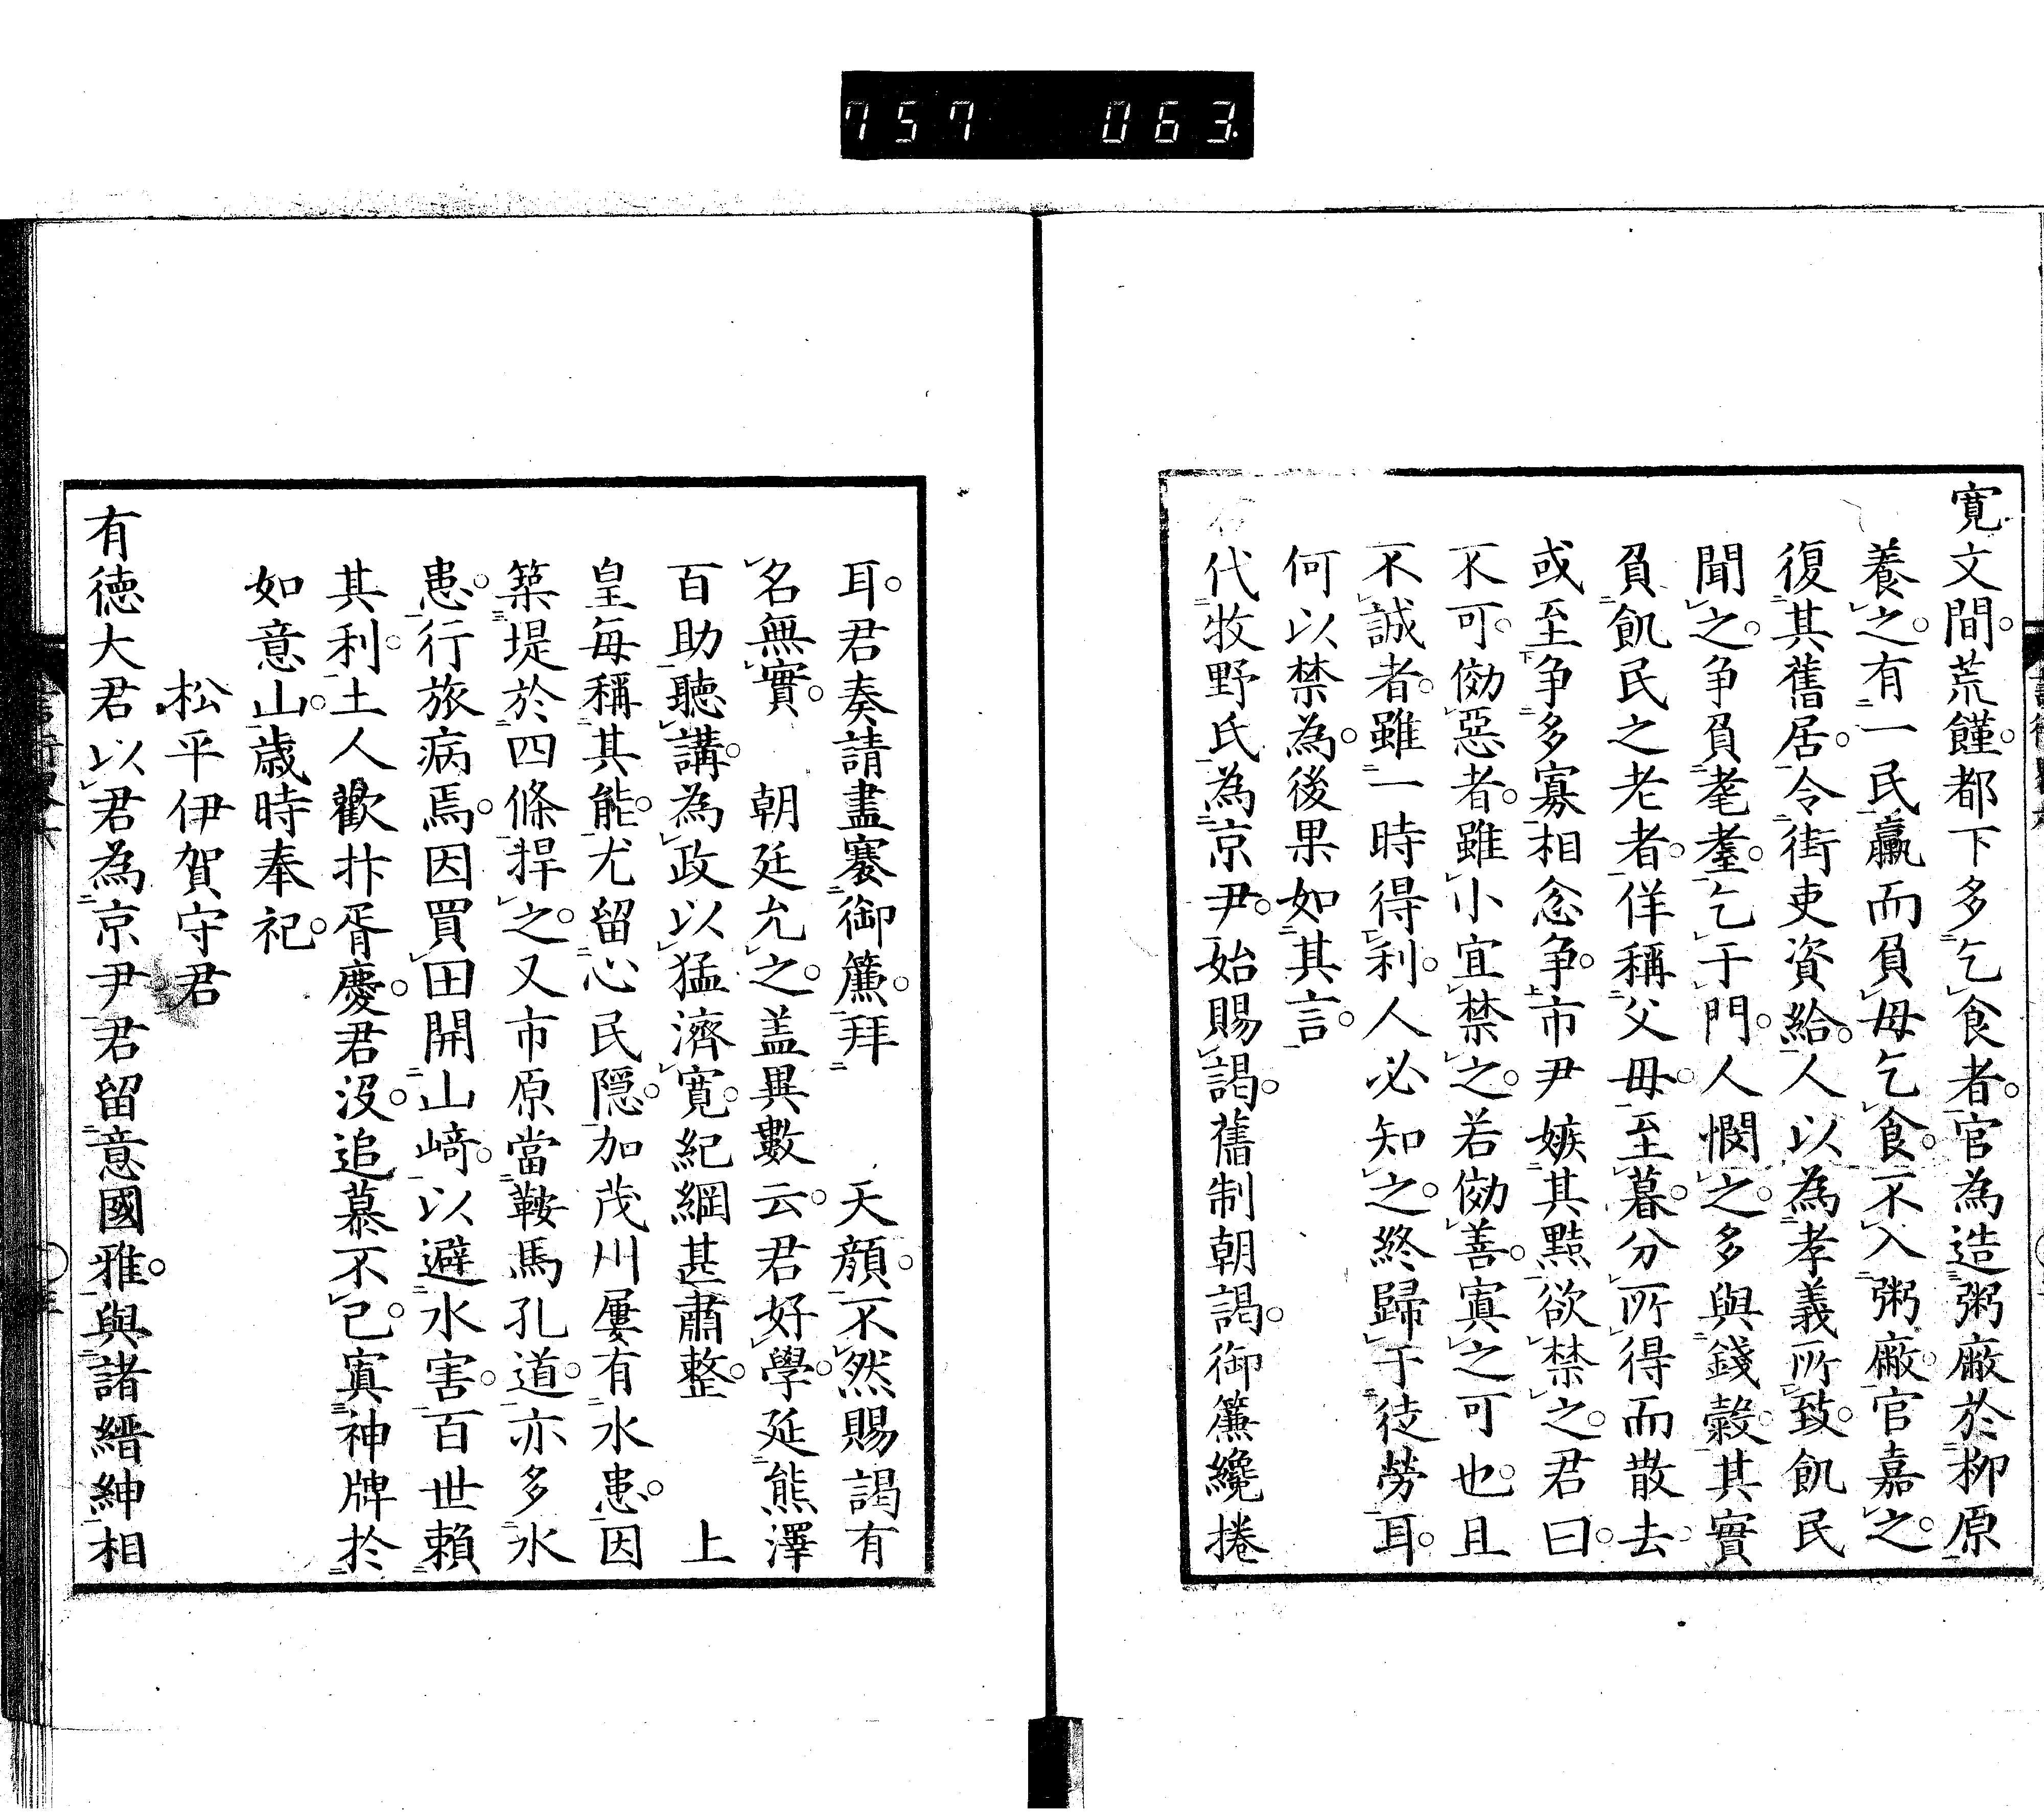 757 063
寛文間。荒饉。都下多乞食者。官為造粥廠於柳原
養之。有一民羸而負母乞食。不入粥廠。官嘉之。
復其舊居。令街吏資給。人以為孝義所致。飢民
聞之。争負耄耋。乞于門。人憫之。多與錢穀。其實
負飢民之老者。佯稱父母。至暮。分所得而散去。
或至争多寡相忿争。市尹嫉其黠。欲禁之。君曰。
不可。傚惡者。雖小宜禁之。若傚善。寘之可也。且
不誠者。雖一時得利。人必知之。終歸于徒勞耳。
何以禁為。後果如其言。
代牧野氏為京尹。始賜謁。舊制朝謁。御簾纔捲
耳。君奏請盡褰御簾。拜 天顔。不然賜謁有
名無實。 朝廷允之。盖異數云。君好學。延熊澤
百助聽講。為政以猛濟寛。紀綱甚肅整。 上
皇每稱其能。尤留心民隠。加茂川屢有水患。因
築堤於四條捍之。又市原當鞍馬孔道。亦多水
患。行旅病焉。因買田開山﨑。以避水害。百世頼
其利。土人歡抃胥慶。君沒。追慕不已。寘神牌於
如意山。歳時奉祀。
松平伊賀守君
有徳大君以君為京尹。君留意國雅。與諸縉紳相